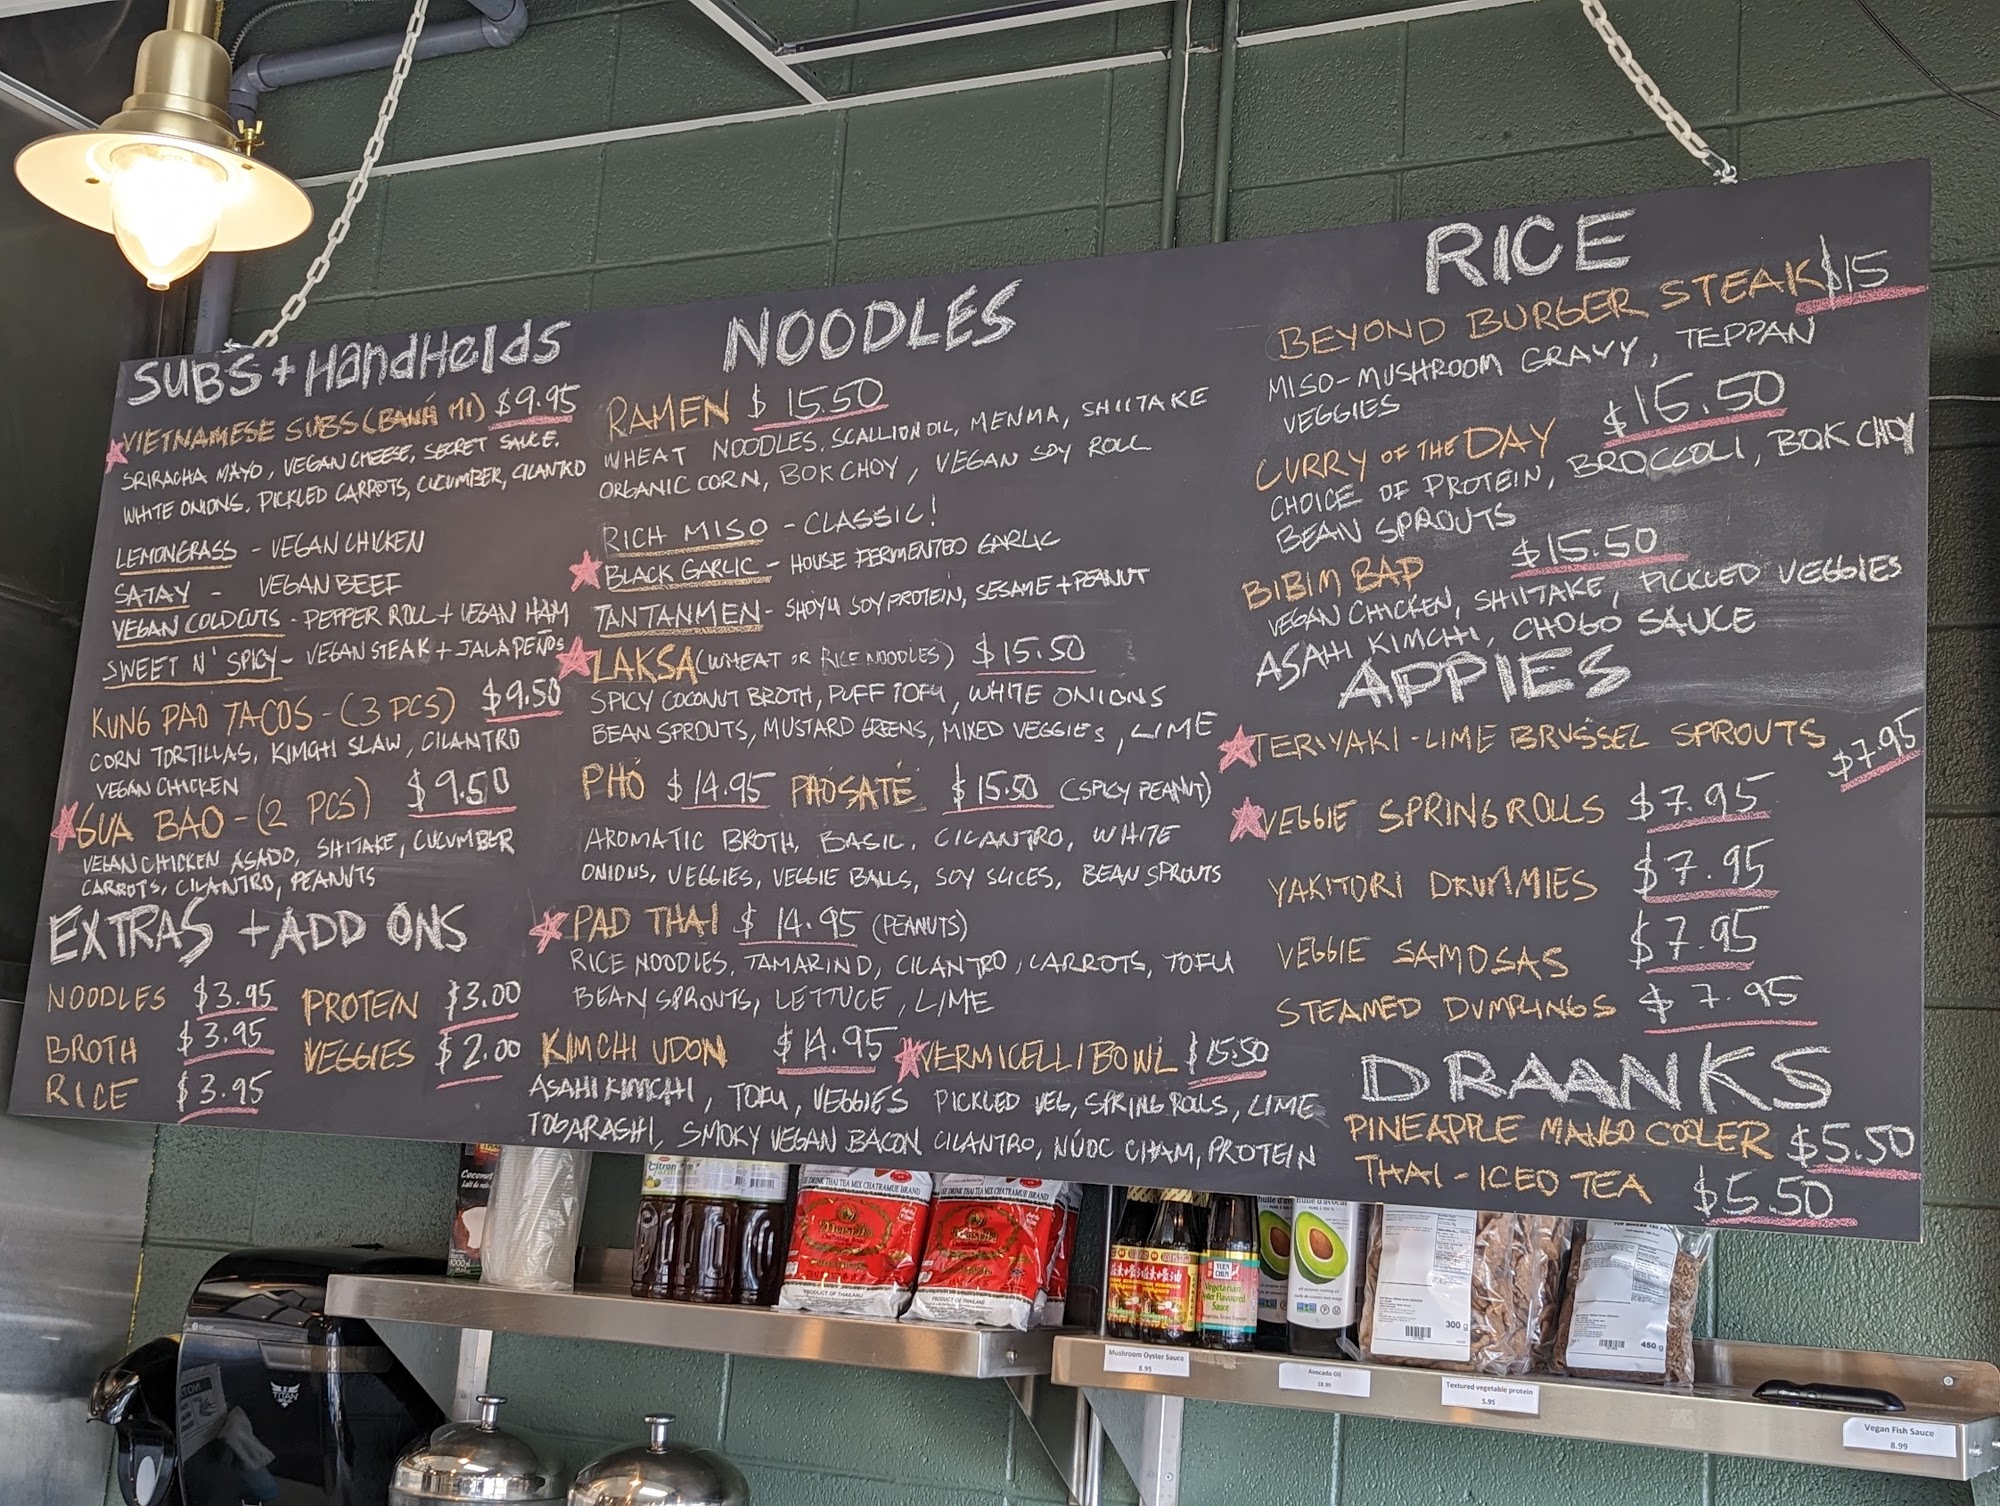 SUBS + HandHelds
VIETNAMESE SUBS (BANH MI) $9.95
SRIRACHA MAYO, VEGAN CHEESE, SECRET SAUCE.
WHITE ONIONS, PICKLED CARROTS, CUCUMBER, CILANTRO
LEMONGRASS - VEGAN CHICKEN
SATAY - VEGAN BEEF
VEGAN COLDCUTS - PEPPER ROLL + VEGAN HAM
SWEET N' SPICY - VEGAN STEAK + JALAPEÑOS
KUNG PAO TACOS - (3 PCS) $9.50
CORN TORTILLAS, KIMCHI SLAW, CILANTRO
VEGAN CHICKEN
GUA BAO - (2 PCS) $9.50
VEGAN CHICKEN ASADO, SHITAKE, CUCUMBER
CARROTS, CILANTRO, PEANUTS
EXTRAS + ADD ONS
NOODLES $3.95 PROTEIN $3.00
BROTH $3.95 VEGGIES $2.00
RICE $3.95
NOODLES
RAMEN $15.50
WHEAT NOODLES, SCALLION OIL, MENMA, SHIITAKE
ORGANIC CORN, BOK CHOY, VEGAN SOY ROLL
RICH MISO - CLASSIC!
BLACK GARLIC - HOUSE FERMENTED GARLIC
TANTANMEN - SHOYU SOY PROTEIN, SESAME + PEANUT
LAKSA (WHEAT OR RICE NOODLES) $15.50
SPICY COCONUT BROTH, PUFF TOFU, WHITE ONIONS
BEAN SPROUTS, MUSTARD GREENS, MIXED VEGGIES, LIME
PHO $14.95 PHO SATÉ $15.50 (SPICY PEANUT)
AROMATIC BROTH, BASIL, CILANTRO, WHITE
ONIONS, VEGGIES, VEGGIE BALLS, SOY SLICES, BEAN SPROUTS
PAD THAI $14.95 (PEANUTS)
RICE NOODLES, TAMARIND, CILANTRO, CARROTS, TOFU
BEAN SPROUTS, LETTUCE, LIME
KIMCHI UDON $14.95
ASAHI KIMCHI, TOFU, VEGGIES
TOGARASHI, SMOKY VEGAN BACON
VERMICELLI BOWL $15.50
PICKLED VEG, SPRING ROLLS, LIME
CILANTRO, NUOC CHAM, PROTEIN
RICE
BEYOND BURGER STEAK $15
MISO-MUSHROOM GRAVY, TEPPAN
VEGGIES
CURRY OF THE DAY $15.50
CHOICE OF PROTEIN, BROCCOLI, BOK CHOY
BEAN SPROUTS
BIBIM BAP $15.50
VEGAN CHICKEN, SHIITAKE, PICKLED VEGGIES
ASAHI KIMCHI, CHOGO SAUCE
APPIES
TERIYAKI-LIME BRUSSEL SPROUTS $7.95
VEGGIE SPRING ROLLS $7.95
YAKITORI DRUMMIES $7.95
VEGGIE SAMOSAS $7.95
STEAMED DUMPLINGS $7.95
DRAANKS
PINEAPPLE MANGO COOLER $5.50
THAI-ICED TEA $5.50
Citron
DRINK THAI TEA MIX CHATRAMUE BRAND
PRODUCT OF THAILAND
DRINK THAI TEA MIX CHATRAMUE BRAND
PRODUCT OF THAILAND
YUEN CHUN
Vegetarian
Flavoured
Sauce
300 g
450 g
TITAN
Mushroom Oyster Sauce
8.95
Avocado Oil
18.95
Textured vegetable protein
5.95
Vegan Fish Sauce
8.99